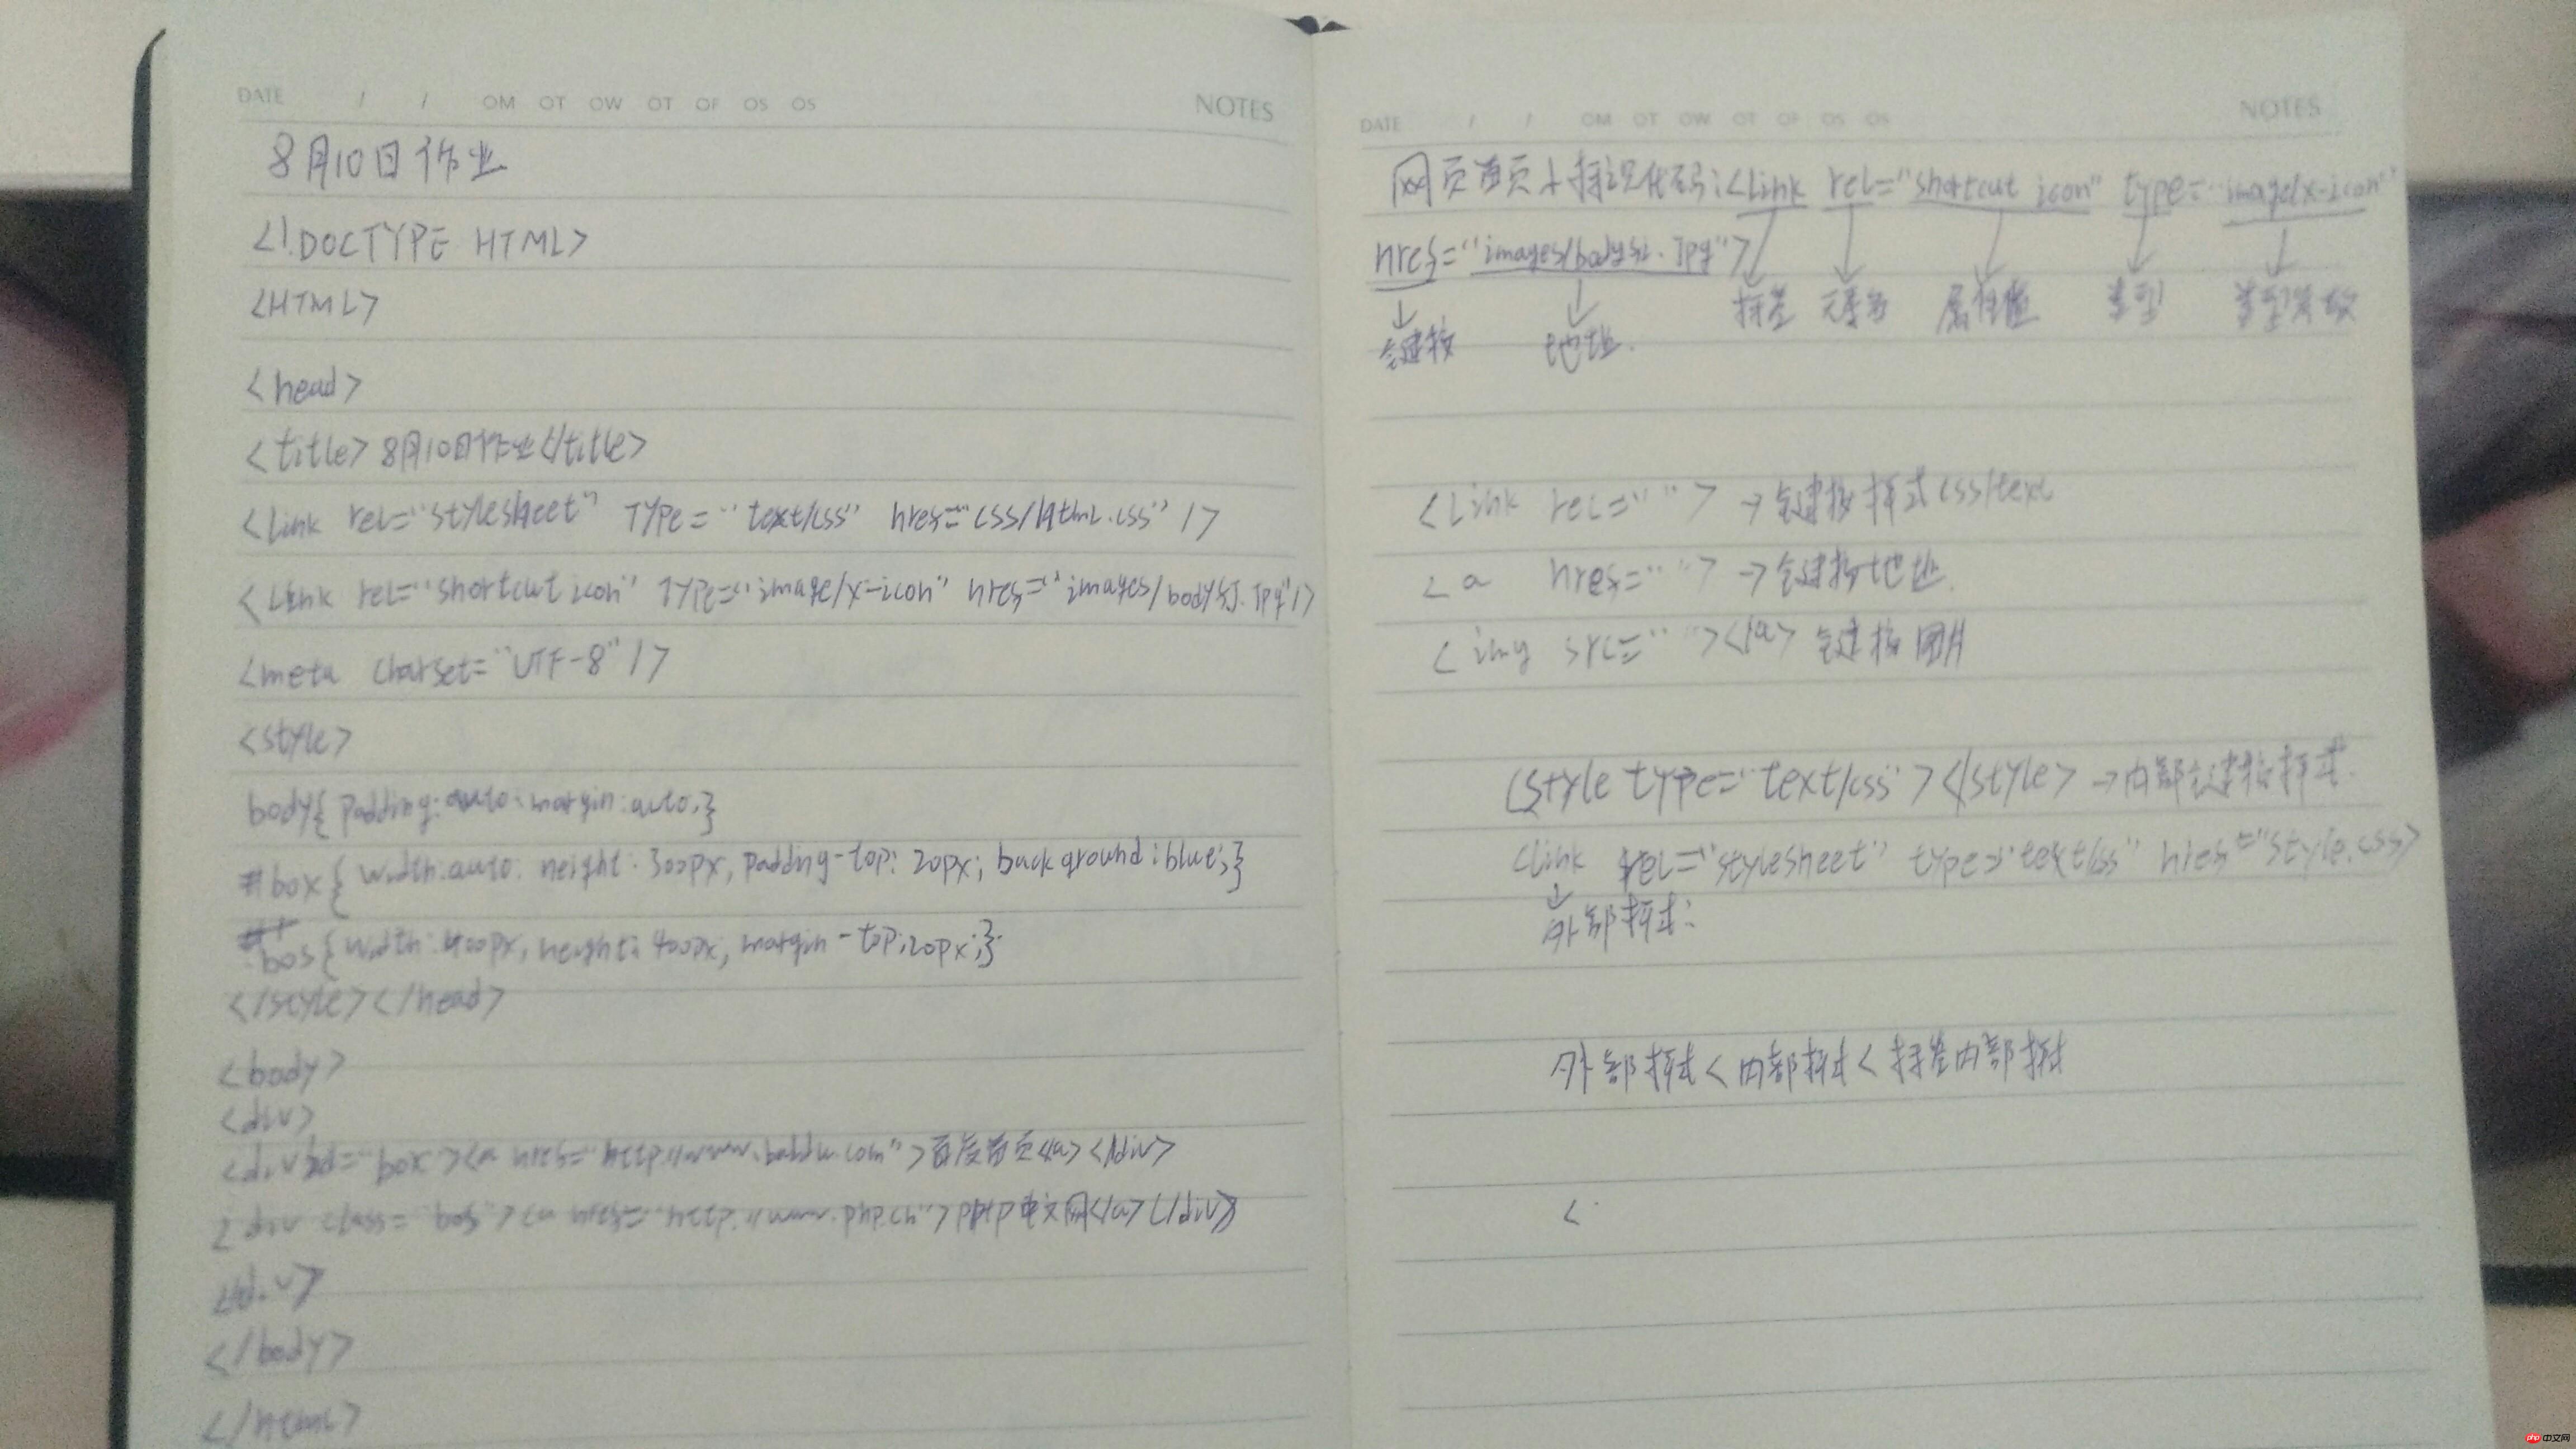 DATE / / OM OT OW OT OF OS OS NOTES
8月10日作业
<!DOCTYPE HTML>
<HTML>
<head>
<title>8月10日作业</title>
<link rel="stylesheet" TYPe="text/css" href="css/html.css" />
<link rel="shortcut icon" TYPe="image/x-icon" href="images/bodysj.jpg"/>
<meta charset="UTF-8" />
<style>
body{padding:auto;margin:auto;}
#box{width:auto; height:300px; padding-top: 20px; background:blue;}
.bos{width:400px; height:400px; margin-top:20px;}
</style></head>
<body>
<div>
<div id="box"><a href="http://www.baidu.com">百度首页</a></div>
<div class="bos"><a href="http://www.php.cn">php中文网</a></div>
</div>
</body>
</html>
DATE / / OM OT OW OT OF OS OS NOTES
网页首页小标识代码:<link rel="shortcut icon" type="image/x-icon"
href="images/bodysj.jpg">
元素名 属性值 类型
地址.
<link rel=" "> → 样式css/text
<a href=" "> → 地址.
<img src=" "></a> 图片
<style type="text/css"></style> → 内部 样式.
<link rel="stylesheet" type="text/css" href="style.css>
外部样式:
外部样式<内部样式<标签内部样式
<
php 中文网